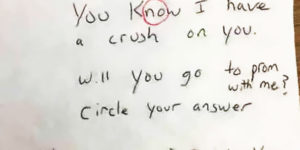 You Know I have
a crush on you.
will you go to prom
with me?
Circle your answer